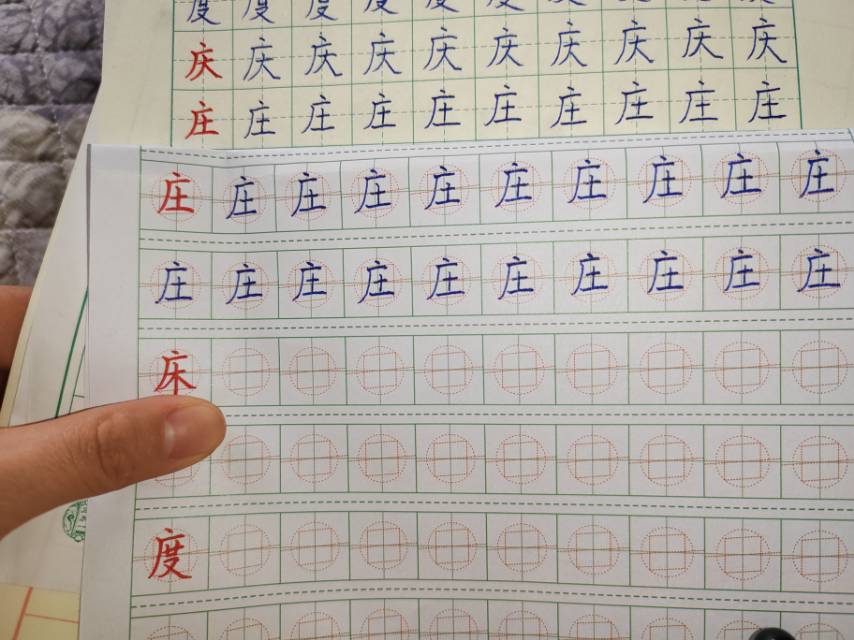 度度度度度度
庆庆庆庆庆庆庆庆庆庆
庄庄庄庄庄庄庄庄庄庄
庄庄庄庄庄庄庄庄庄庄
庄庄庄庄庄庄庄庄庄庄
床
度